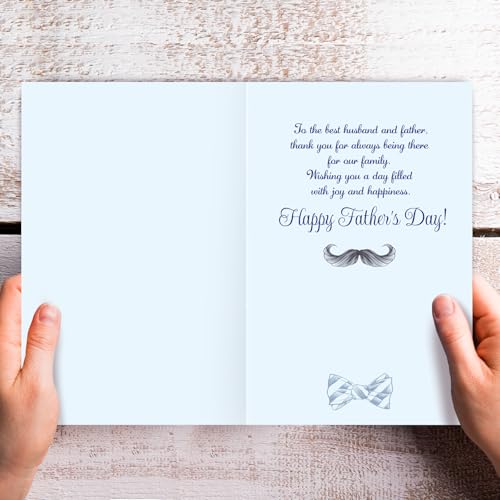 To the best husband and father,
thank you for always being there
for our family.
Wishing you a day filled
with joy and happiness.
Happy Father's Day!